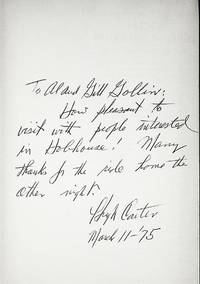 To Al and Gill Gollin:
How pleasant to
visit with people interested
in Hobhouse! Many
thanks for the ride home the
other night.
Hugh Carter
March 11-75